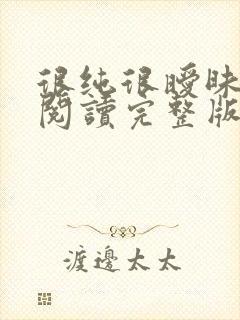 很純很曖昧
閱讀完整版
渡邊太太